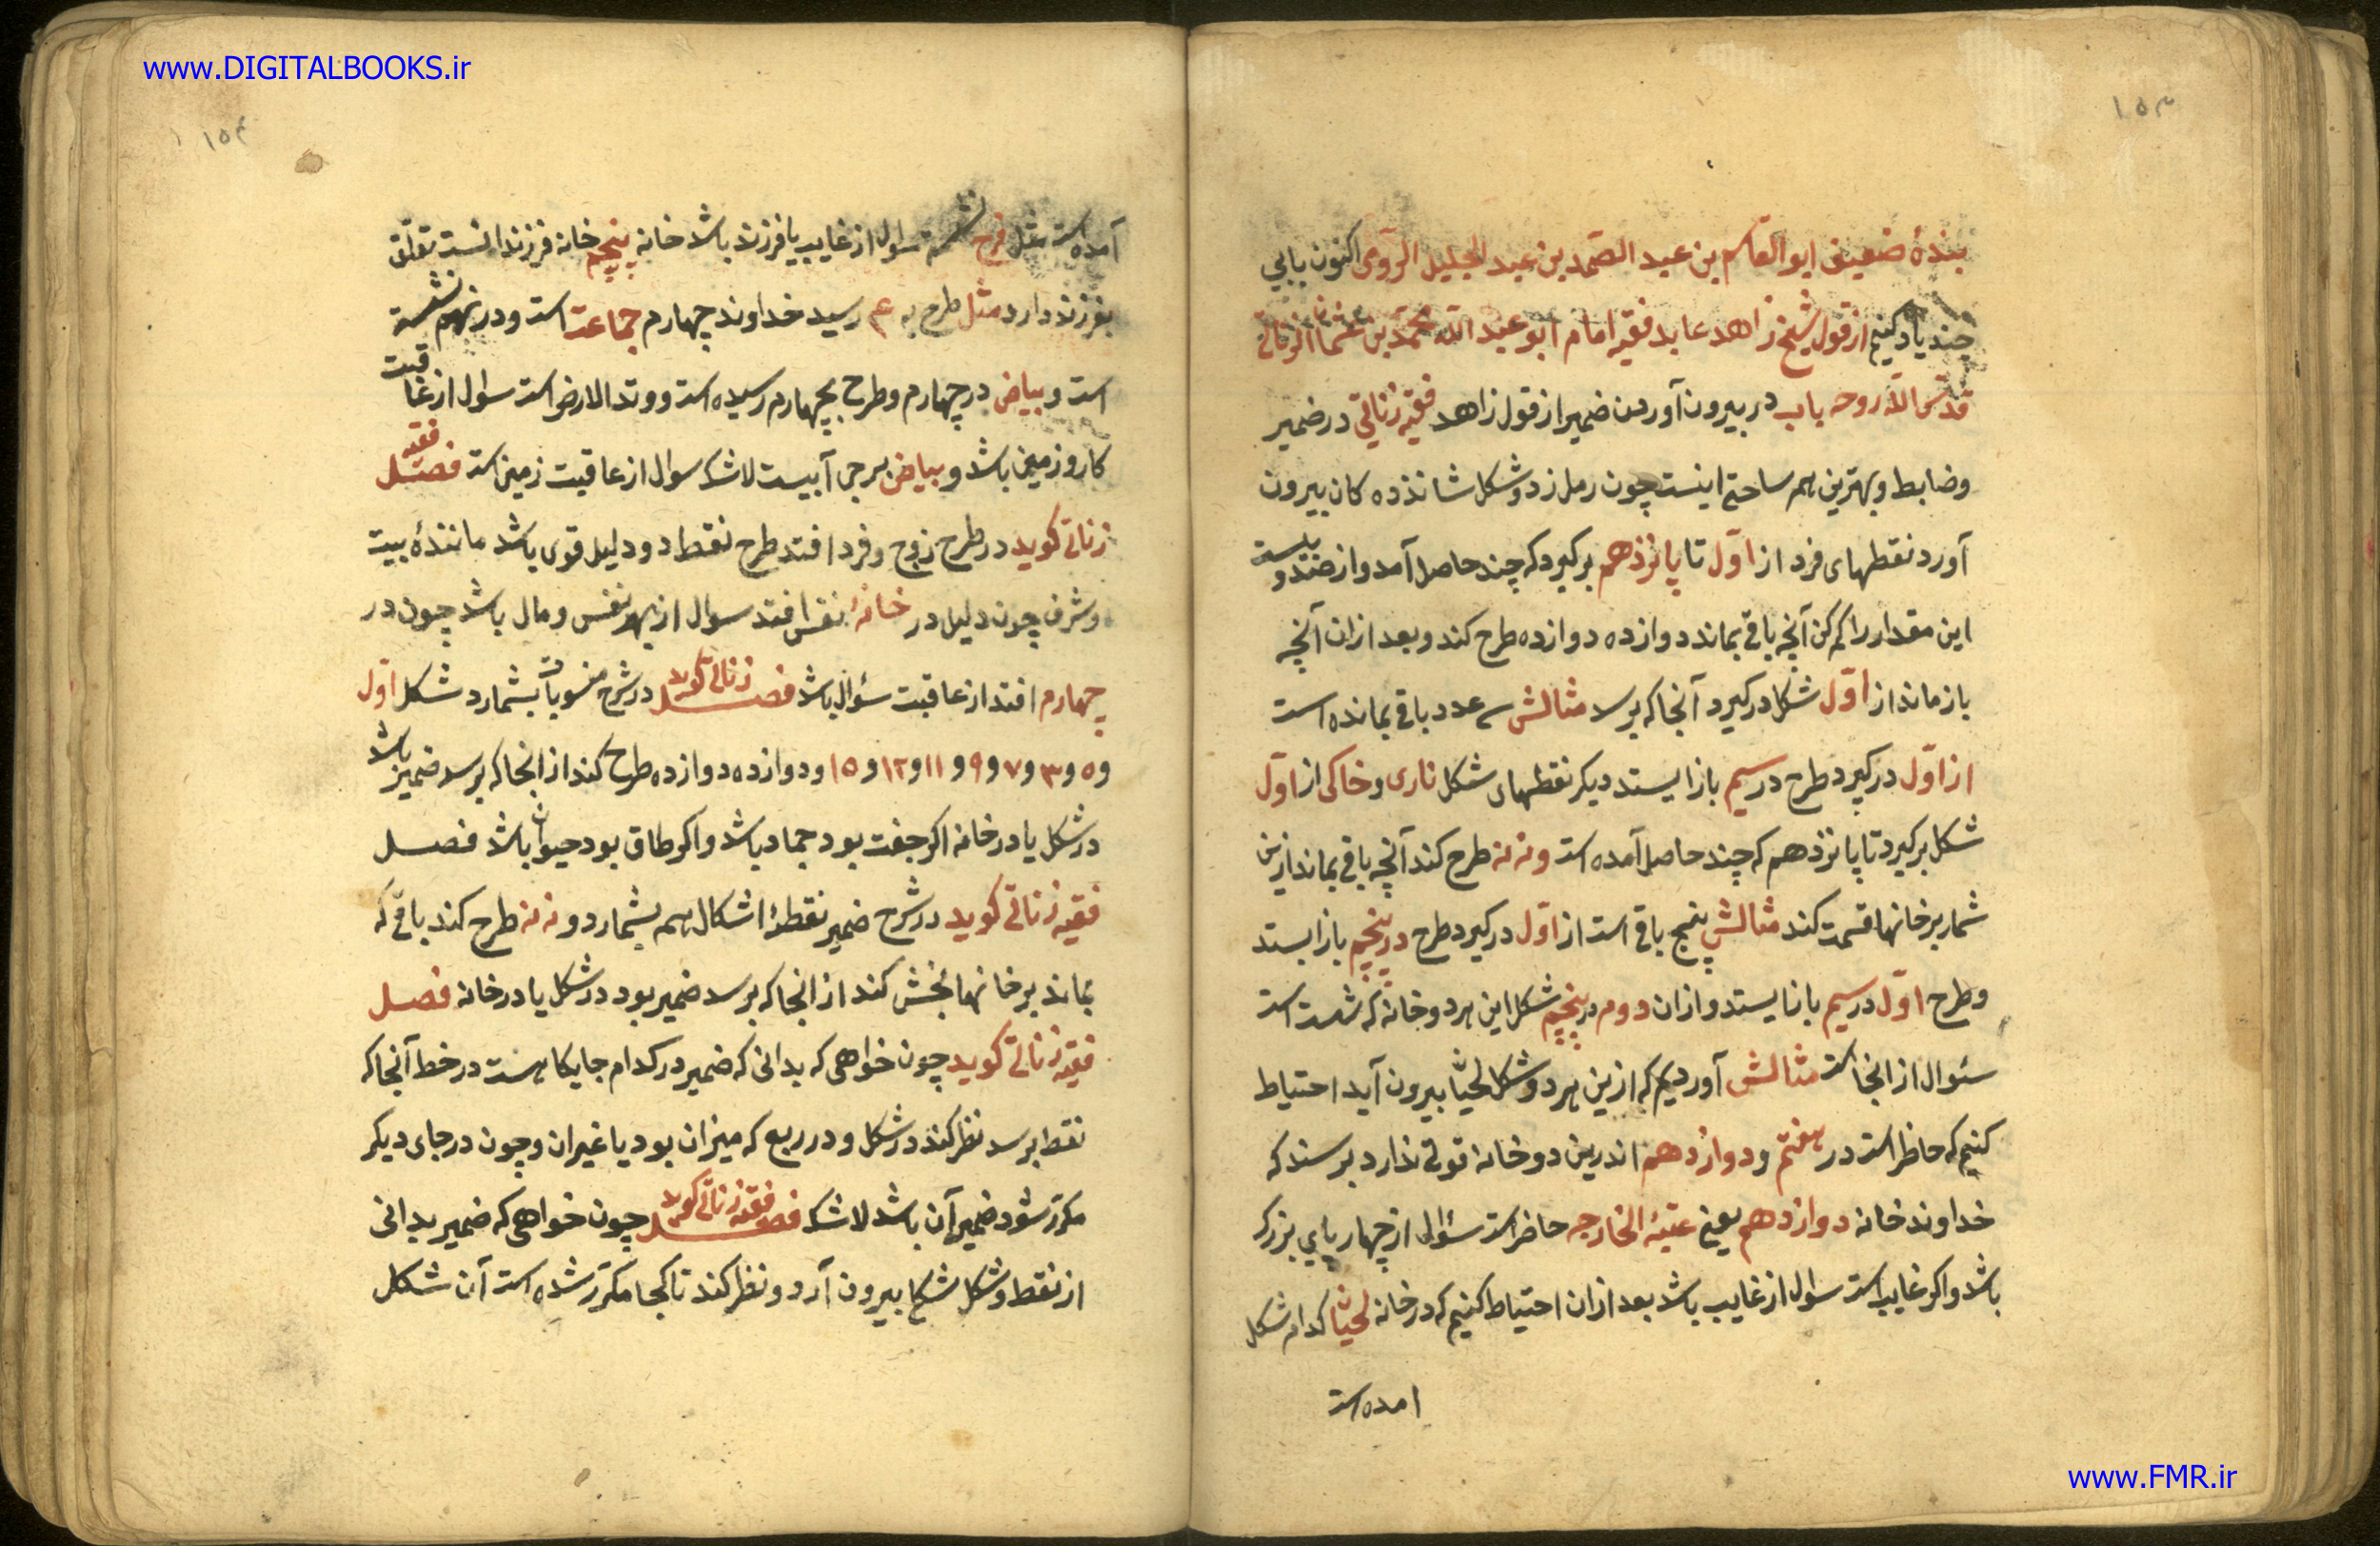 www.DIGITALBOOKS.ir
۱۵۳
بندهٔ ضعیف ابو القاسم بن عبد الصمد بن عبد الجلیل الرومی اکنون بابی
چند یاد کنیم از قول شیخ زاهد عابد فقیه امام ابو عبد الله محمد بن عثمان الزناتی
قدس الله روحه باب در بیرون آوردن ضمیر از قول زاهد فقیه زناتی در ضمیر
وضابط وبهترین همه ساحتی اینست چون رمل زد و شکل شانزده کان بیرون
آورد نقطهای فرد از اول تا پانزدهم برکیرد که چند حاصل آمد واز صد وبیست
این مقدار را کم کن آنچه باقی بماند دوازده دوازده طرح کند وبعد ازان آنچه
باز ماند از اول شکل درکیرد آنجا که برسد مثالش سه عدد باقی بمانده است
از اول درکیرد طرح در سیم باز ایستد دیکر نقطهای شکل ناری وخاکی از اول
شکل برکیرد تا پانزدهم که چند حاصل آمده است ونه نه طرح کند آنچه باقی بماند ازین
شمار بر خانها قسمت کند مثالش پنج باقی است از اول درکیرد طرح در پنجم باز ایستد
وطرح اول در سیم باز ایستد وازان دوم در پنجم شکل این هر دو خانه که شمست است
سئوال از انجا است مثالش آوردیم که ازین هر دو شکل لحیان بیرون آید احتیاط
کنیم که حاظر است در هفتم ودوازدهم اندرین دو خانه قوتی ندارد برسند که
خداوند خانه دوازدهم یعنی عتبة الخارجه حاضر است سئوال از چهار پای بزرک
باشد واکر غایب است سوال از غایب باشد بعد ازان احتیاط کنیم که در خانه لحیان کدام شکل
امده است
۱۵۴
آمده است مثل فرح نشسته سوال از غایب یا فرزند باشد خانه پنجم خانه فرزندانست تعلق
بفرزند دارد مثل طرح به ۴ رسید خداوند چهارم جماعت است ودر نهم نشسته
است وبیاض در چهارم وطرح بچهارم رسیده است ووتد الارض است سوال از عاقبت
کار وزمین باشد وبیاض برجی آبیست لاشک سوال از عاقبت زمین است فصل فقیه
زناتی کوید در طرح زوج وفرد افتد طرح نقط دو دلیل قوی باشد مانندهٔ بیت
وشرف چون دلیل در خانهٔ نفس افتد سوال از بهر نفس ومال باشد چون در
چهارم افتد از عاقبت سئوال باشد فصل زناتی کوید در شرح منسوبات بشمارد شکل اول
و۵ و۳ و۷ و۹ و۱۱ و۱۲ و۱۵ ودوازده دوازده طرح کند از انجا که برسد ضمیر باشد
در شکل یا در خانه اکر جفت بود جماد باشد واکر طاق بود حیوان باشد فصل
فقیه زناتی کوید در شرح ضمیر نقطهٔ اشکال همه بشمارد ونه نه طرح کند باقی که
بماند بر خانها بخش کند از انجا که برسد ضمیر بود در شکل یا در خانه فصل
فقیه زناتی کوید چون خواهی که بدانی که ضمیر در کدام جایکا هست در خط آنجا که
نقط برسد نظر کند در شکل ودر ربع که میزان بود یا غیر ان وچون در جای دیکر
مکرر شود ضمیر آن باشد لاشک فصل فقیه زناتی کوید چون خواهی که ضمیر بدانی
از نقط وشکل شکلی بیرون آرد ونظر کند تا کجا مکرر شده است آن شکل
www.FMR.ir